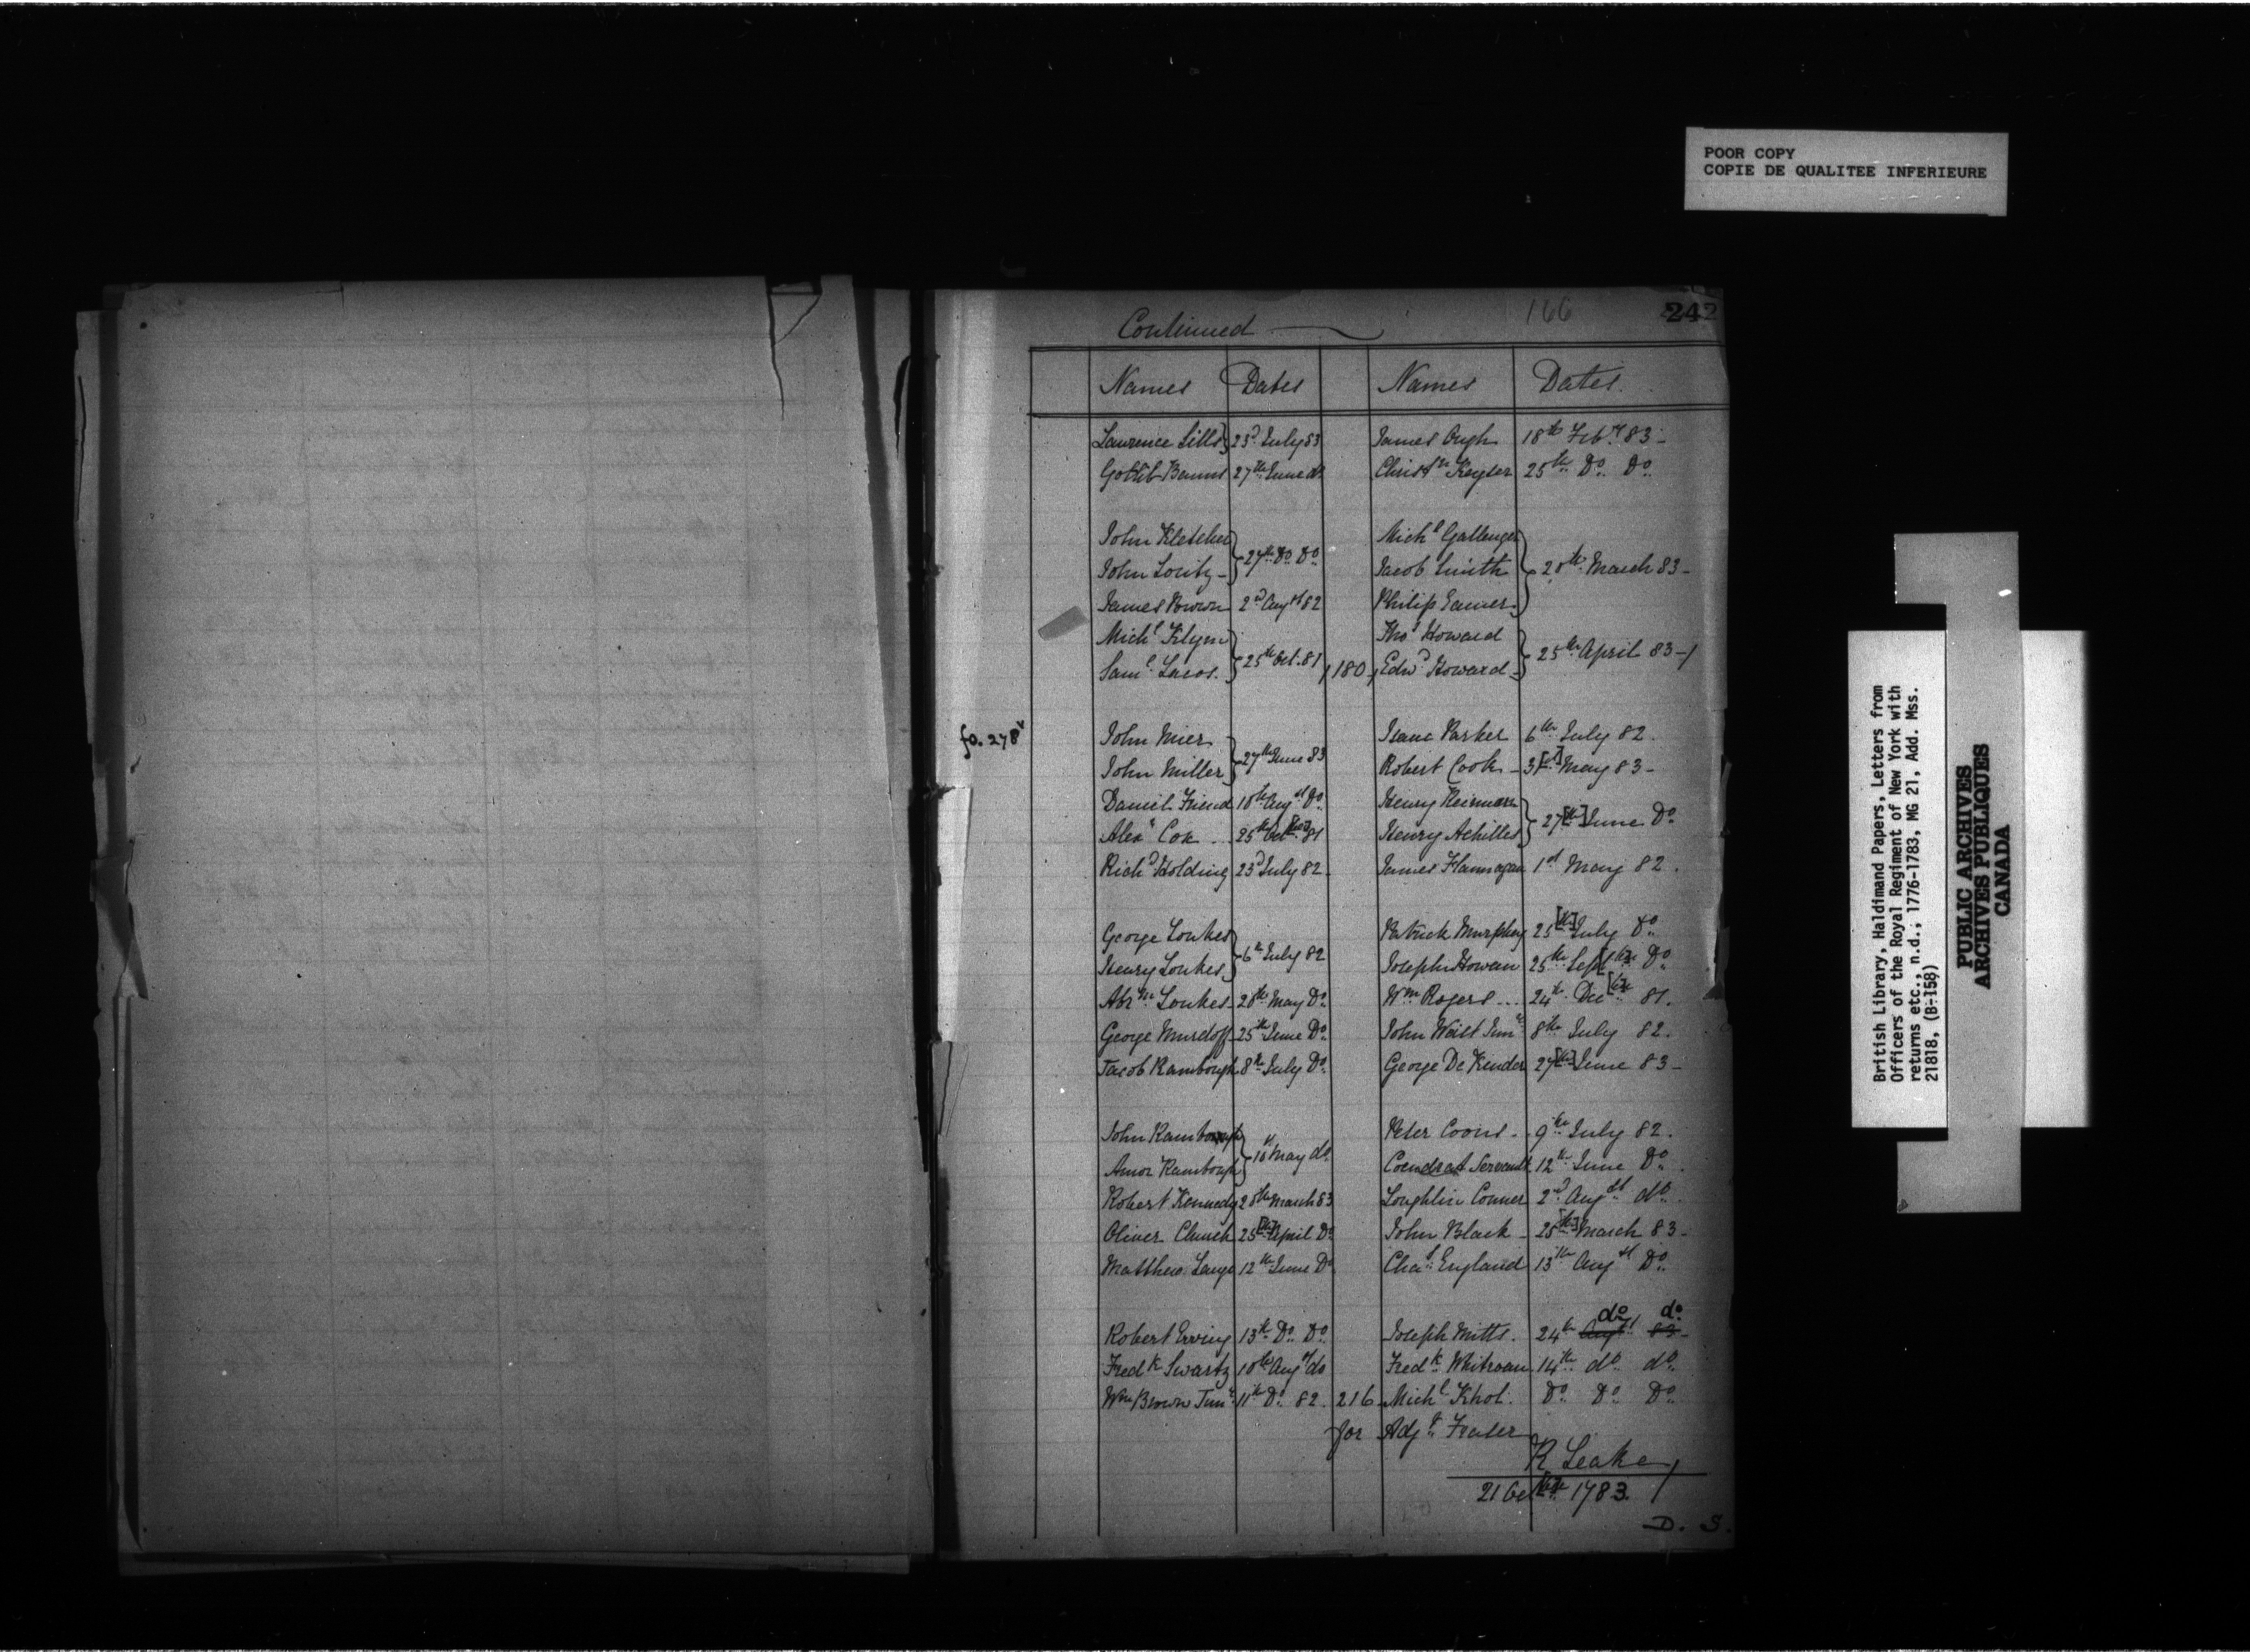 POOR COPY
COPIE DE QUALITEE INFERIEURE
166 242
Continued
Names Dates Names Dates
Lawrence Sills } 23d July 83 James Ough 18th Feby 83 -
Gotlib Baums 27th June do Christn Keyler 25th Do Do
John Kletcher Michl Gallenger
} 27th Do Do
John Loutz - Jacob Smith } 28th March 83 -
James Brown 2d Augst 82 Philip Eamer
Michl Klyne Thos Howard
} 25th Oct. 81 } 25th April 83 - /
Saml Lacos. / 180 / Edwd Howard -
fo. 278v John Mier Isaac Parker 6th July 82.
} 27th June 83
John Miller Robert Cook - 31[st] May 83 -
Daniel Friend 18th Augst Do Henry
} 27[th] June Do
Alexr Cox .. 25th Oct[ber] 81 Henry Achilles
Richd Holding 23d July 82 - James Flannagan 1st May 82.
George Loukes Patrick Murphey 25[th] July Do
} 6th July 82
Henry Loukes Joseph Howean 25th Sept[ber] Do
Abrm Loukes - 28th May Do Wm Rogers ... 24th Dec[ber] 81.
George Murdoff - 25th June Do John Waist Junr 8th July 82.
Jacob Rambough 8th July Do George De Kender 27[th] June 83 -
John Rambough Peter Coons .. 9th July 82.
} 18th May do
Amor Rambough Coendrat Servault 12th June Do
Robert Kennedy 28th March 83 Loughlin Conner 2d Augst do
Oliver Church 25[th] April Do John Black - 25[th] March 83 -
Matthew Lange 12th June Do Chas England 13th Augst Do
do do
Robert Erving 13th Do Do Joseph Mitts. 24th Augst 83 -
Fredk Swartz 18th Augst do Fredk Whitroan 14th do do
Wm Brown Junr 11th Do 82. 216 Michl Khol. Do Do Do
for Adjt Frater
R Leake /
21 Oct[ber] 1783. /
D. S.
British Library, Haldimand Papers, Letters from
Officers of the Royal Regiment of New York with
returns etc., n.d., 1776-1783, MG 21, Add. Mss.
21818, (B-158)
PUBLIC ARCHIVES
ARCHIVES PUBLIQUES
CANADA